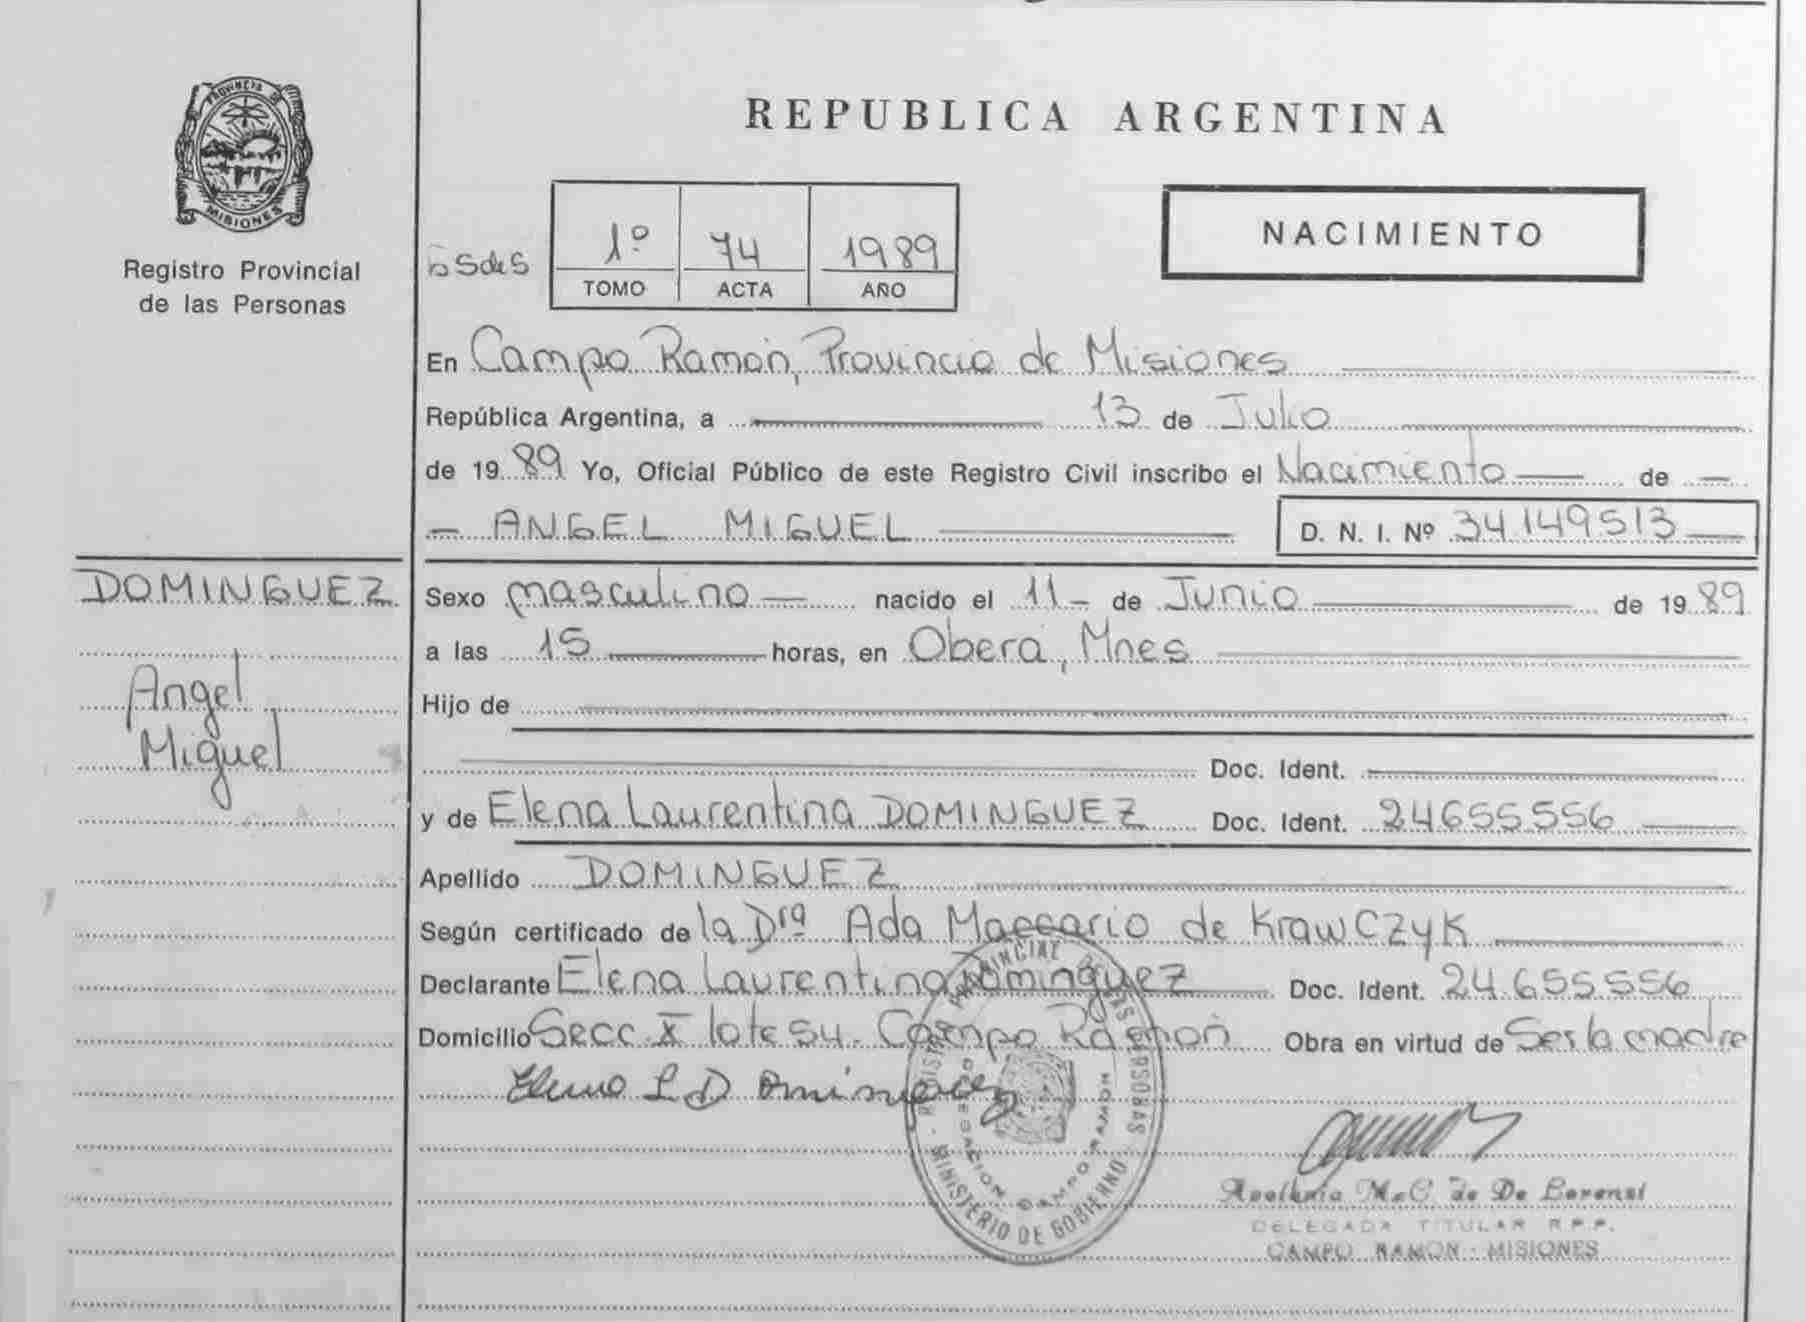 PROVINCIA DE
MISIONES
Registro Provincial
de las Personas
REPUBLICA ARGENTINA
1º 74 1989
TOMO ACTA AÑO
NACIMIENTO
En Campo Ramón, Provincia de Misiones
República Argentina, a 13 de Julio
de 1989 Yo, Oficial Público de este Registro Civil inscribo el Nacimiento de
ANGEL MIGUEL D. N. I. Nº 34.149.513
DOMINGUEZ
Angel
Miguel
Sexo masculino nacido el 11 de Junio de 1989
a las 15 horas, en Oberá, Mnes
Hijo de
Doc. Ident.
y de Elena Laurentina DOMINGUEZ Doc. Ident. 24655556
Apellido DOMINGUEZ
Según certificado de la Drª Ada Maccario de KrawCZyK
Declarante Elena Laurentina Dominguez Doc. Ident. 24.655.556
Domicilio Secc. X lote 54. Campo Ramón Obra en virtud de Ser la madre
Elena L D ominguez
REGISTRO PROVINCIAL DE LAS PERSONAS
DELEGACION CAMPO RAMON
MINISTERIO DE GOBIERNO
de De Lorenzi
DELEGADA TITULAR R.P.P.
CAMPO RAMON - MISIONES